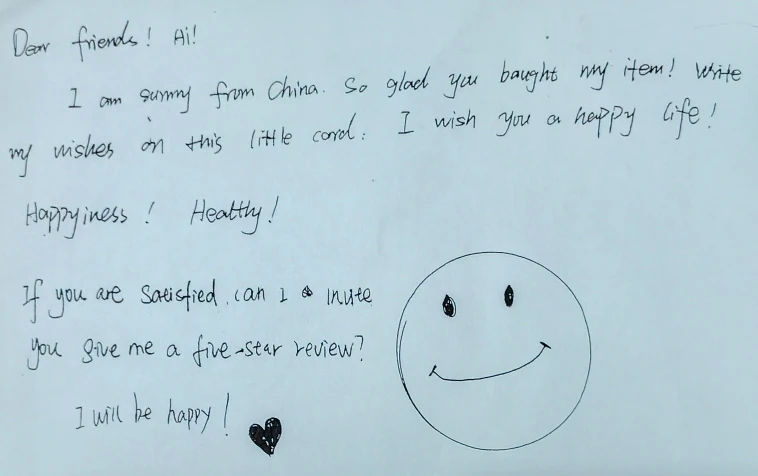 Dear friends! Hi!
I am sunny from China. So glad you bought my item! Write
my wishes on this little card: I wish you a happy life!
Happyiness! Healthy!
If you are satisfied, can I invite
you give me a five-star review?
I will be happy!